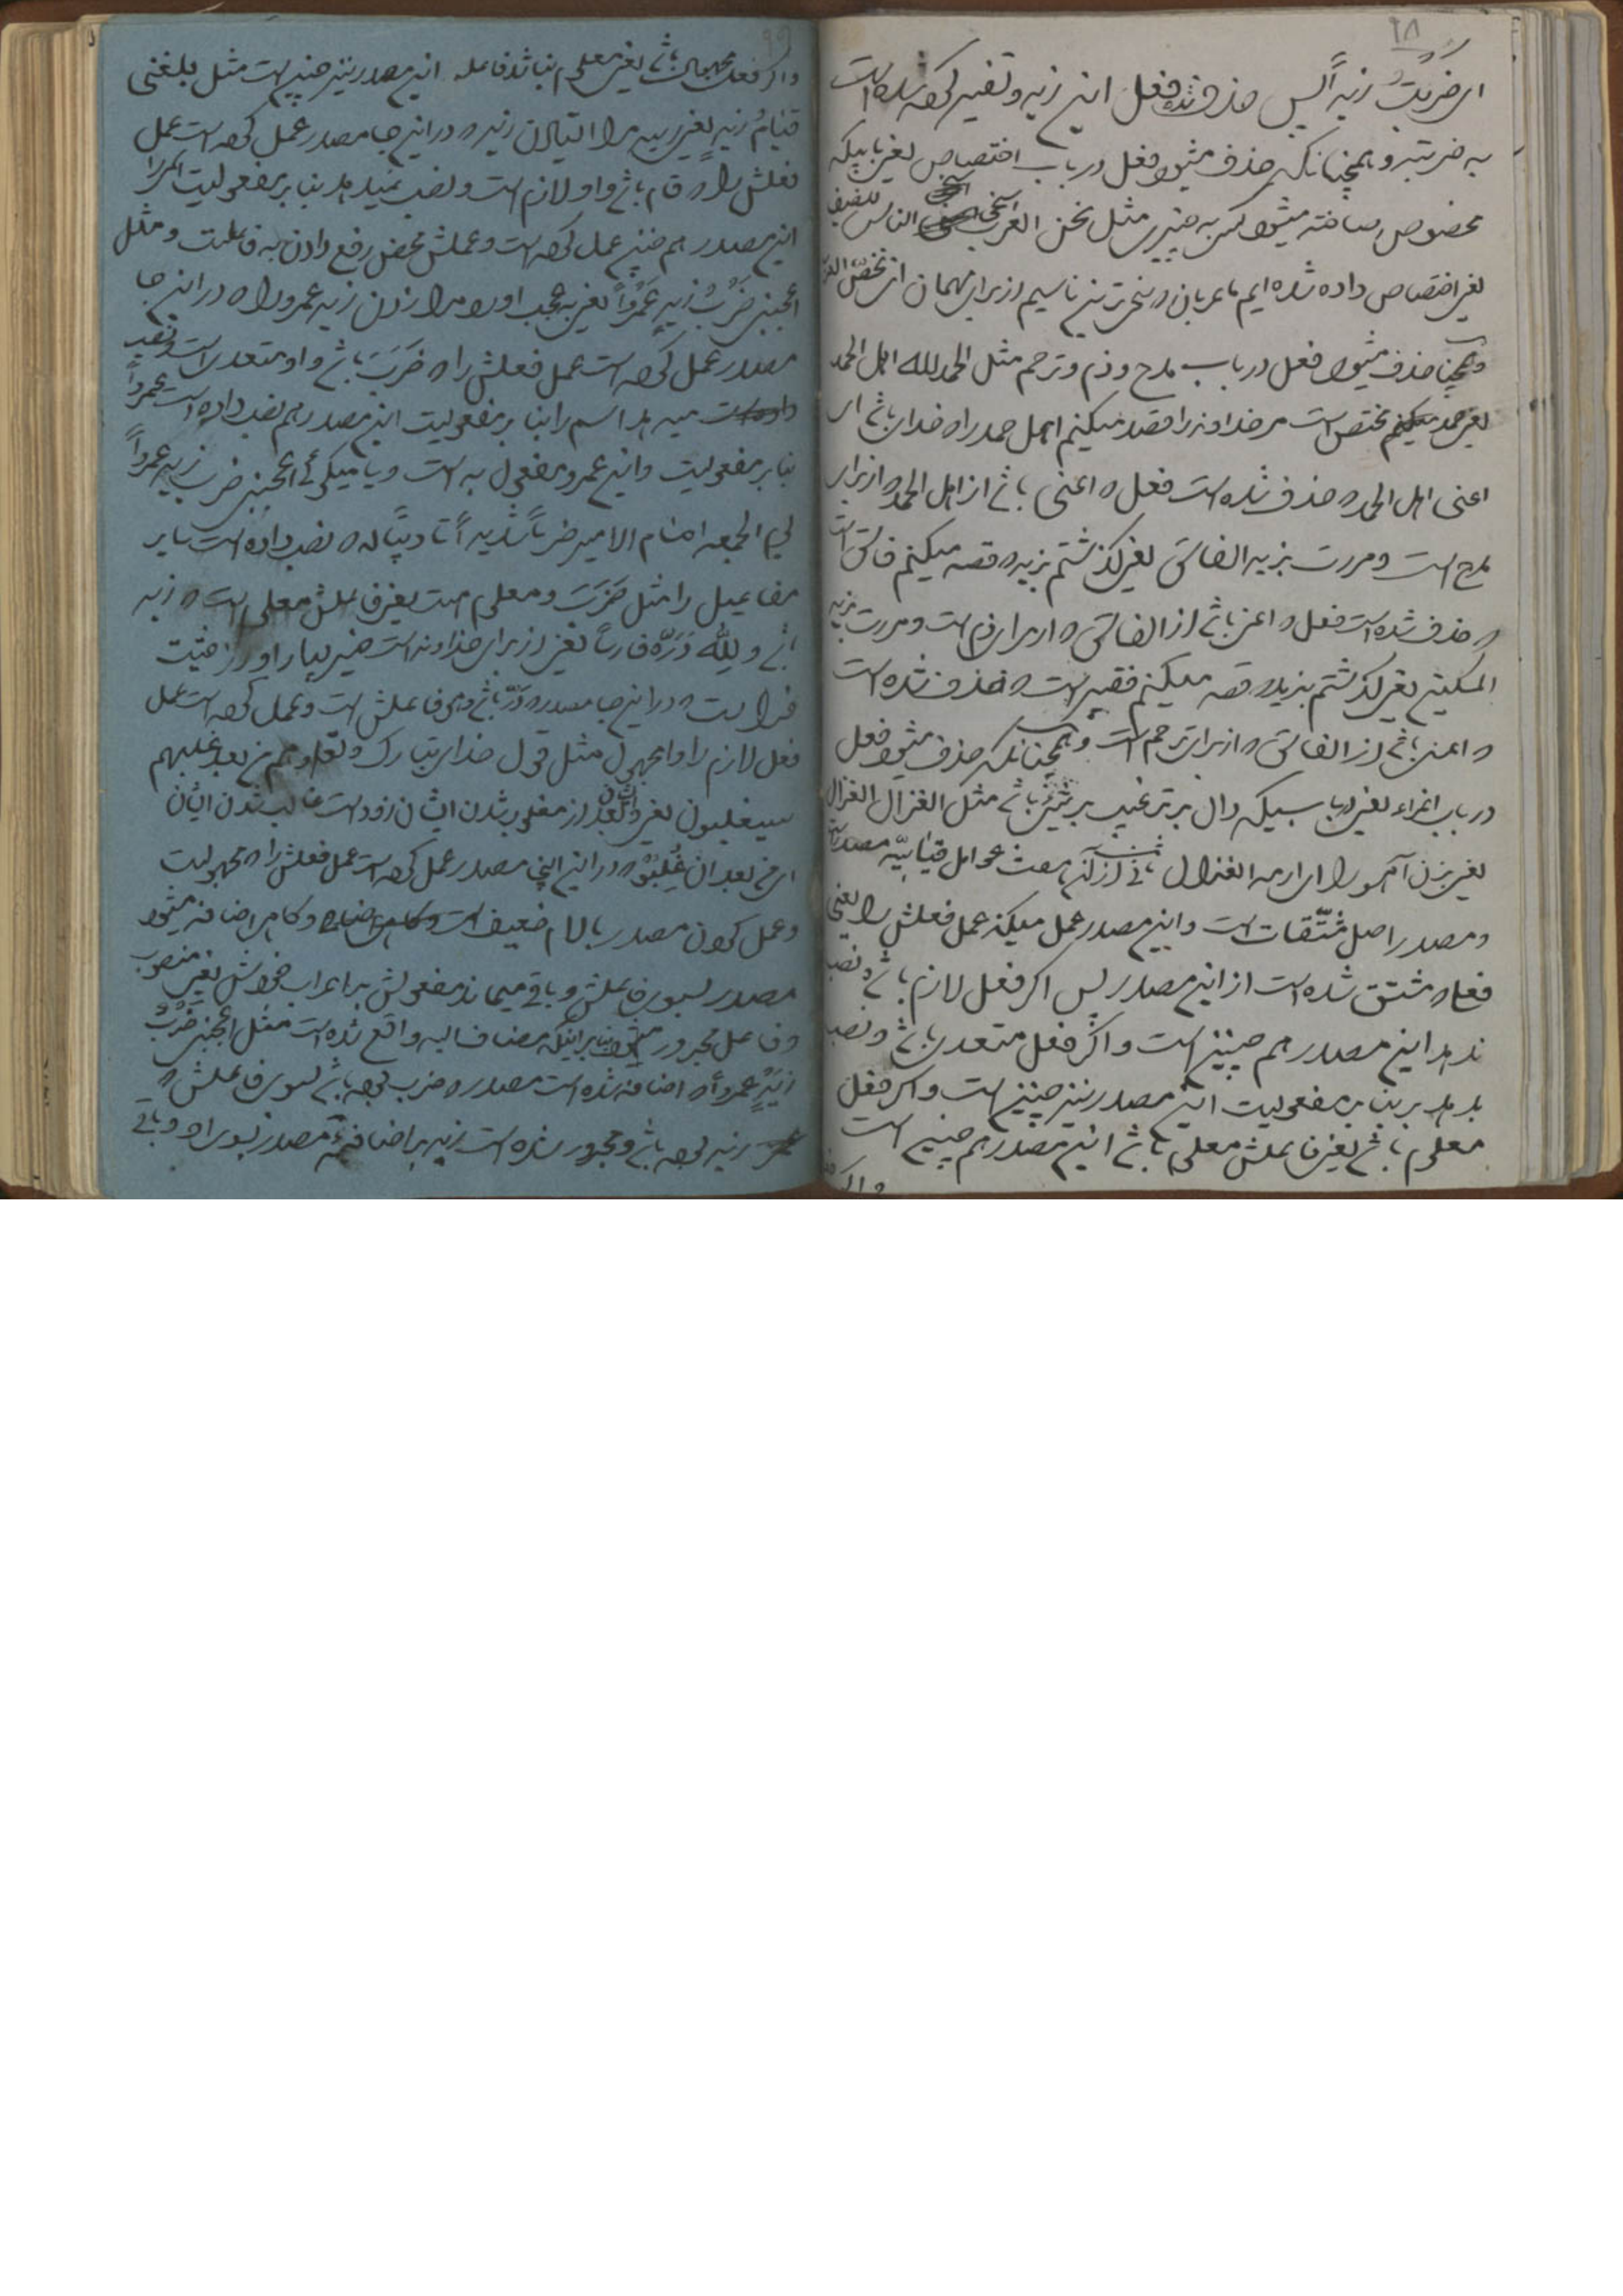 ۹۸
ای ضَرَبتُ زیداً پس حذف شده فعل این زید و تفسیر کرده شده است
به ضربته و همچنانکه حذف میشود فعل در باب اختصاص یعنی بابیکه
مخصوص ساخته میشود کسی به چیزی مثل نحن العرب اسخی الناس للضیف
یعنی اختصاص داده شده ایم ما عربان و سخی ترین ناسیم از برای مهمان ای نخصّ العرب
و همچنین حذف میشود فعل در باب مدح و ذم و ترحم مثل الحمد لله اهل الحمد
یعنی حمد مختص است مر خداوند را قصد میکنم اهل حمد را که خدای باشد ای
اعنی اهل الحمد که حذف شده است فعل که اعنی باشد از اهل الحمد که از برای
مدح است و مررت بزید الفاسق یعنی گذشتم بزید که قصد میکنم فاسق است
که حذف شده است فعل که اعنی باشد از الفاسق که از برای ذم است و مررت بزید
المسکین یعنی گذشتم بزید که قصد میکنم فقیر است که حذف شده است
که اعنی باشد از الفاسق که از برای ترحم است و همچنانکه حذف میشود فعل
در باب اغراء یعنی در بابیکه دال بر ترغیب بر چیزی باشد مثل الغزال الغزال
یعنی بزن آهو را ای ارم الغزال ثانی از آن هفت عوامل قیاسیّه مصدر است
و مصدر اصل مشتّقات است و این مصدر عمل میکند عمل فعلش را یعنی
فعل که مشتق شده است از این مصدر پس اگر فعل لازم باشد و نصب
ندهد این مصدر هم چنین است و اگر فعل متعدی باشد و نصب
بدهد بر بنا بر مفعولیت این مصدر نیز چنین است و اگر فعل
معلوم باشد یعنی فاعلش معلوم باشد این مصدر هم چنین است
و اگر
۹۹
و اگر فعل مجهول باشد یعنی معلوم نباشد فاعله این مصدر نیز چنین است مثل بلغنی
قیامُ زیدٍ یعنی رسید مرا ایستادن زید که در این جا مصدر عمل کرده است عمل
فعلش را که قام باشد و او لازم است و نصب نمیدهد بنا بر مفعولیت
این مصدر هم چنین عمل کرده است و عملش محض رفع دادن به فاعلست و مثل
اعجبنی ضربُ زیدٍ عَمْرواً یعنی به عجب اورد مرا زدن زید عمرو را که در این جا
مصدر عمل کرده است عمل فعلش را که ضَرَبَ باشد و او متعدی است و نصب
میدهد اسم را بنا بر مفعولیت این مصدر هم نصب داده است عمرواً
بنا بر مفعولیت و این عمرو مفعول به است و یا میگوئی اعجبنی ضرب زید عمرواً
یوم الجمعه امام الامیر ضرباً شدیداً تادیباً له که نصب داده است سایر
مفاعیل را مثل ضَرَبَ و معلوم است یعنی فاعلش معلوم است که زید
باشد و لِلّه دَرّه فارساً یعنی از برای خداوند است خیر بسیار او از حیثیت
که در این جا مصدر که دَرّ باشد و هو فاعلش است و عمل کرده است عمل
فعل لازم را و المجهول مثل قول خدای تبارک و تعالی و هم من بعد غلبهم
سیغلبون یعنی و ایشان بعد از مغلوب شدن ایشان زود است غالب شدن ایشان
ای من بعد ان غُلِبُوْا که در این مصدر عمل کرده است عمل فعلش را که مجهولیت
و عمل کردن مصدر بالام ضعیف است و گاهی اضافه میشود
مصدر بسوی فاعلش و باقی میماند مفعولش بر اعراب خودش یعنی منصوب
و فاعل مجرور میشود بنابر اینکه مضاف الیه واقع شده است مثل اعجبنی ضَرْبُ
زَیْدٍ عمرواً که اضافه شده است مصدر که ضرب بوده باشد بسوی فاعلش که
زید بوده باشد و مجرور شده است زید بر اضافه مصدر بسوی او و باقی